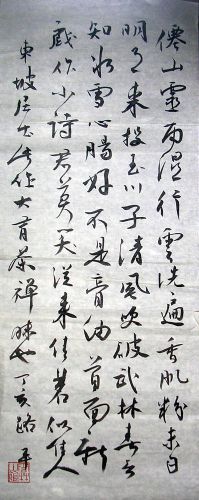 僊山靈雨濕行雲洗遍香肌粉未匀
明月来投玉川子清風吹破武林春要
知冰雪心腸好不是膏油首面新
戲作小詩君莫笑從来佳茗似佳人
東坡居士此作大有茶禪味也丁亥路